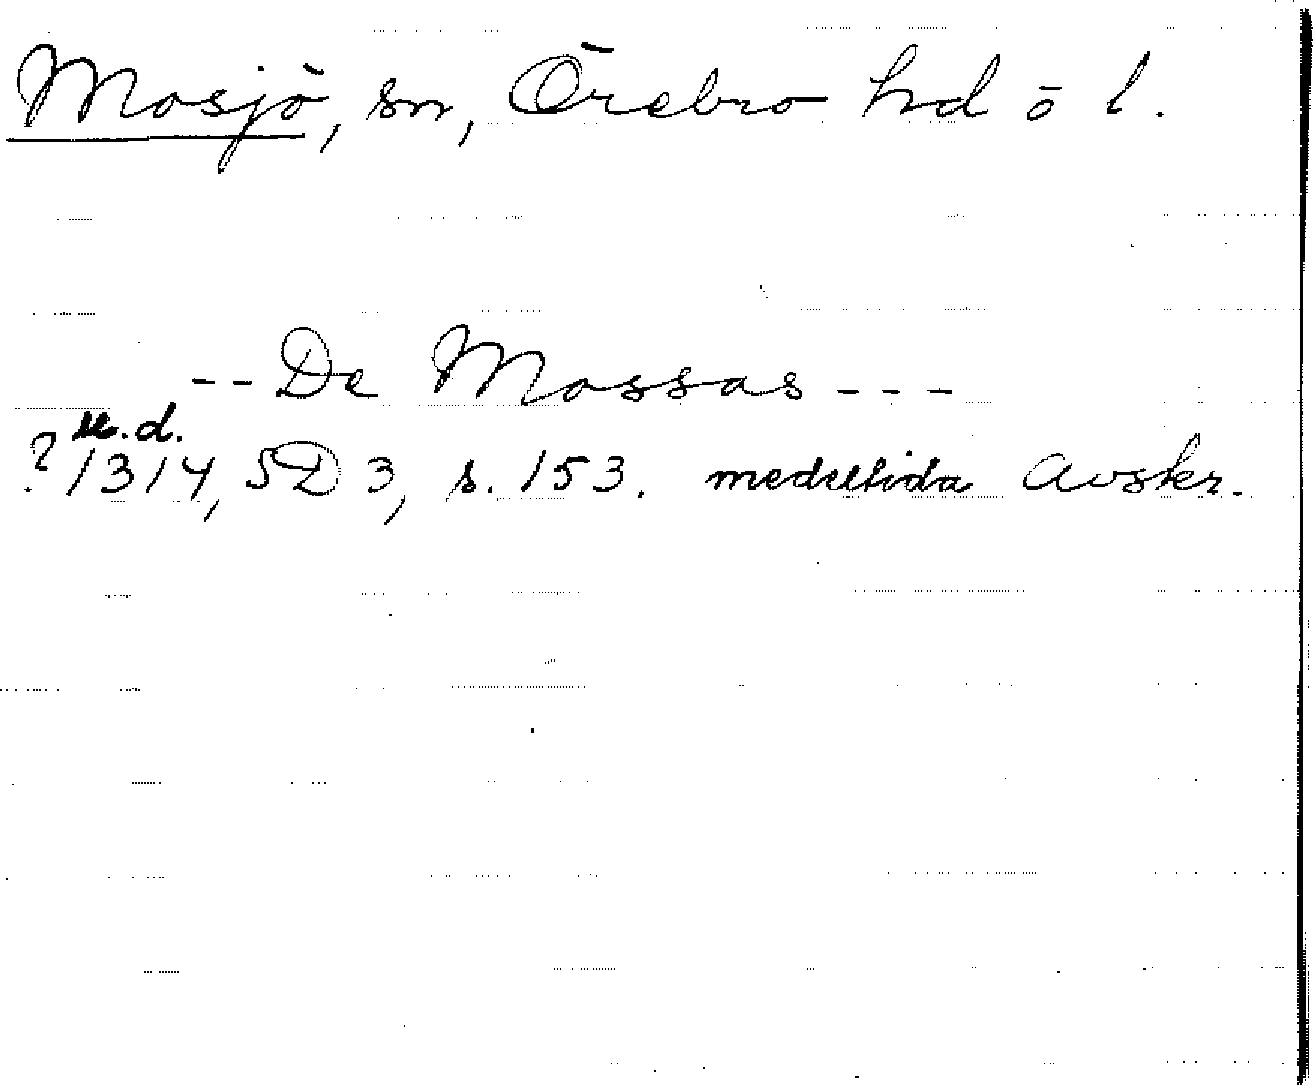 Mosjö, sn, Örebro hd ö l.
-- De Mossas ---
u.d.
? 1314, SD 3, s. 153. medeltida avskr.